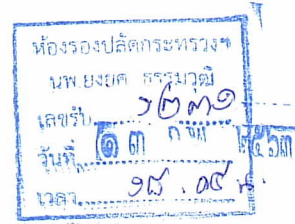 ห้องรองปลัดกระทรวงฯ
นพ.ยงยศ ธรรมวุฒิ
เลขรับ ๖๒๓๑
วันที่ ๑๓ ก.พ. ๒๕๖๓
เวลา ๑๘.๐๔ น.